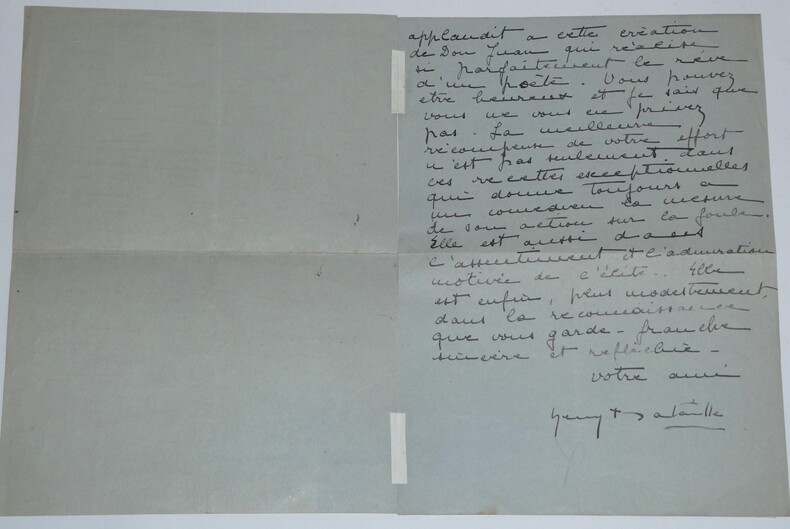 applaudit a cette création
de Don Juan qui réalise
si parfaitement le rêve
d'un poète. Vous pouvez
être heureux et je sais que
vous ne vous en privez
pas. La meilleure
récompense de votre effort
n'est pas seulement dans
ces recettes exceptionnelles
qui donne toujours a
un comedien la mesure
de son action sur la foule.
Elle est aussi dans
l'assentiment et l'admiration
motivée de l'élite.. Elle
est enfin, plus modestement,
dans la reconnaissance
que vous garde - franche
sincère et réfléchie -
votre ami
Henry Bataille